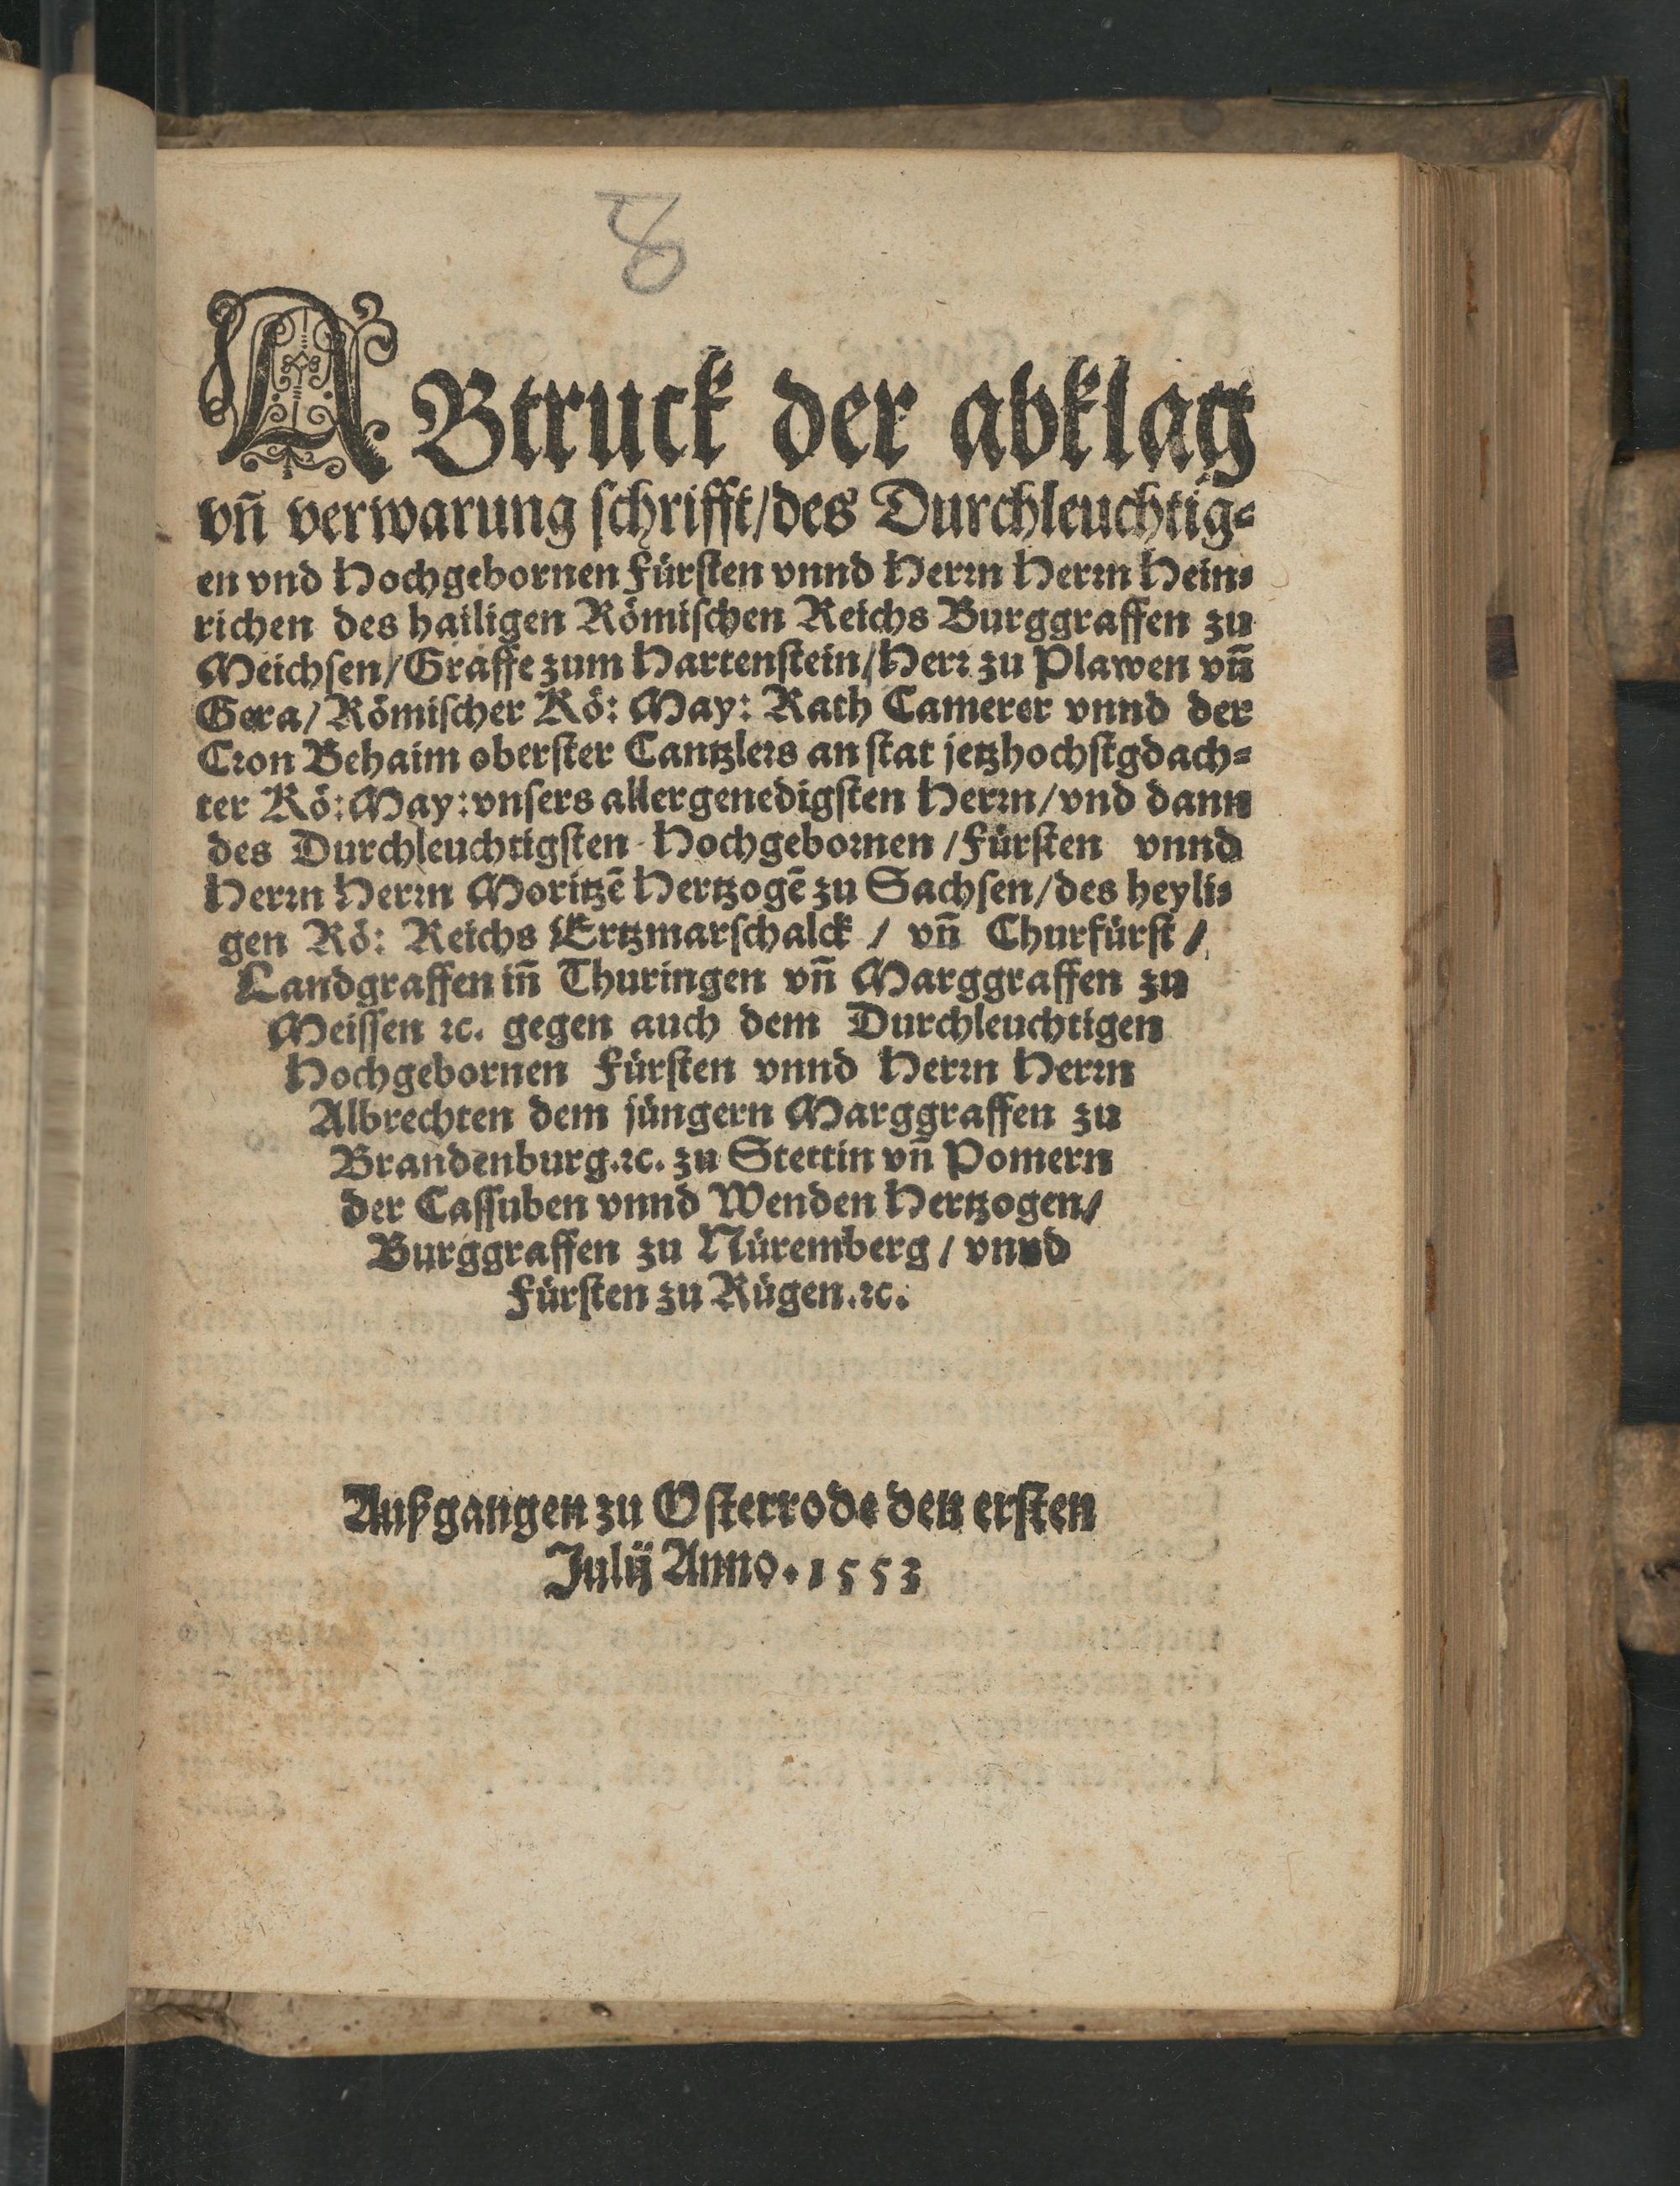 8
ABtruck der abklag
vñ verwarung schrifft/des Durchleuchtig-
en vnd Hochgebornen Fürsten vnnd Herrn Herrn Hein-
richen des hailigen Römischen Reichs Burggraffen zu
Meichsen/Graffe zum Hartenstein/Herr zu Plawen vñ
Gera/Römischer Kö: May: Rath Camerer vnnd der
Cron Behaim oberster Cantzlers an stat jetzhochstgdach-
ter Kö: May: vnsers allergenedigsten Herrn/vnd dann
des Durchleuchtigsten Hochgebornen/Fürsten vnnd
Herrn Herrn Moritzē Hertzogē zu Sachsen/des heyli-
gen Rö: Reichs Ertzmarschalck / vñ Churfürst/
Landgraffen iñ Thuringen vñ Marggraffen zu
Meissen ꝛc. gegen auch dem Durchleuchtigen
Hochgebornen Fürsten vnnd Herrn Herrn
Albrechten dem jüngern Marggraffen zu
Brandenburg.ꝛc. zu Stettin vñ Pomern
der Cassuben vnnd Wenden Hertzogen/
Burggraffen zu Nüremberg/ vnnd
Fürsten zu Rügen.ꝛc.
Außgangen zu Osterrode den ersten
Julij Anno. 1553